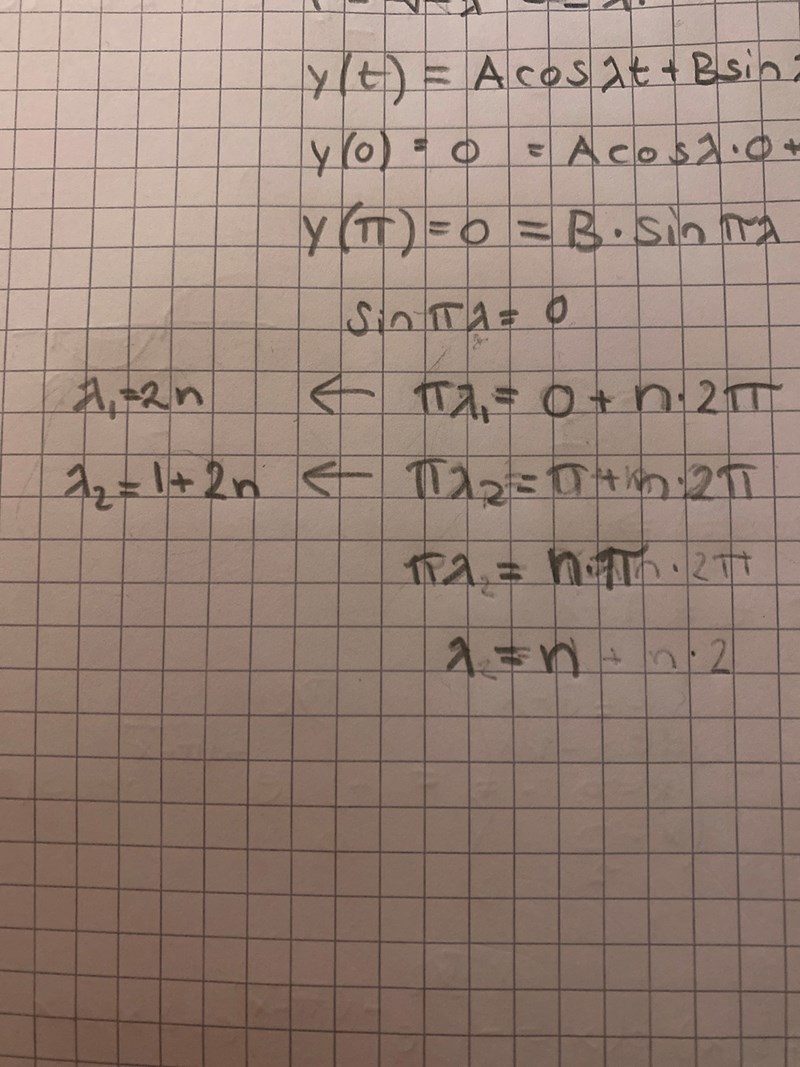 y(t) = A cos λt + B sin
y(0) = 0 = A cos λ·0 +
y(π) = 0 = B · sin πλ
sin πλ = 0
λ₁ = 2n ← πλ₁ = 0 + n·2π
λ₂ = 1 + 2n ← πλ₂ = π + n·2π
πλ₂ = n·π n·2π
λ₂ = n + n·2